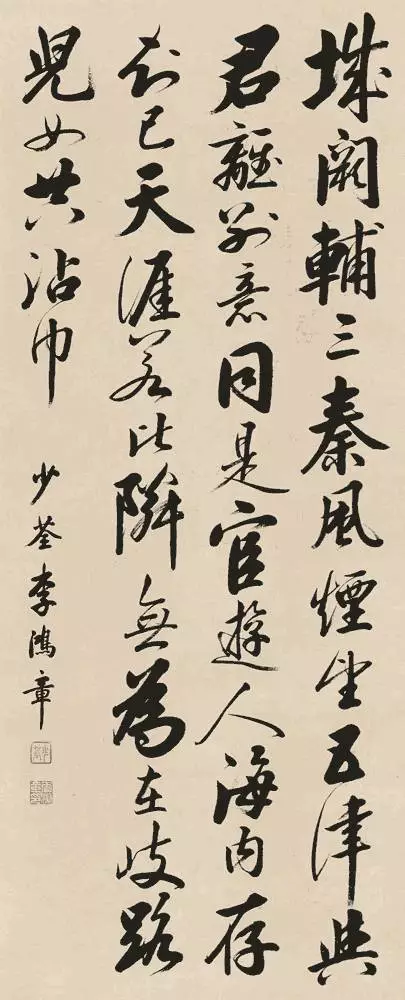 城闕輔三秦風煙望五津與
君離別意同是宦遊人海内存
知己天涯若比隣無為在歧路
兒女共沾巾
少荃李鴻章